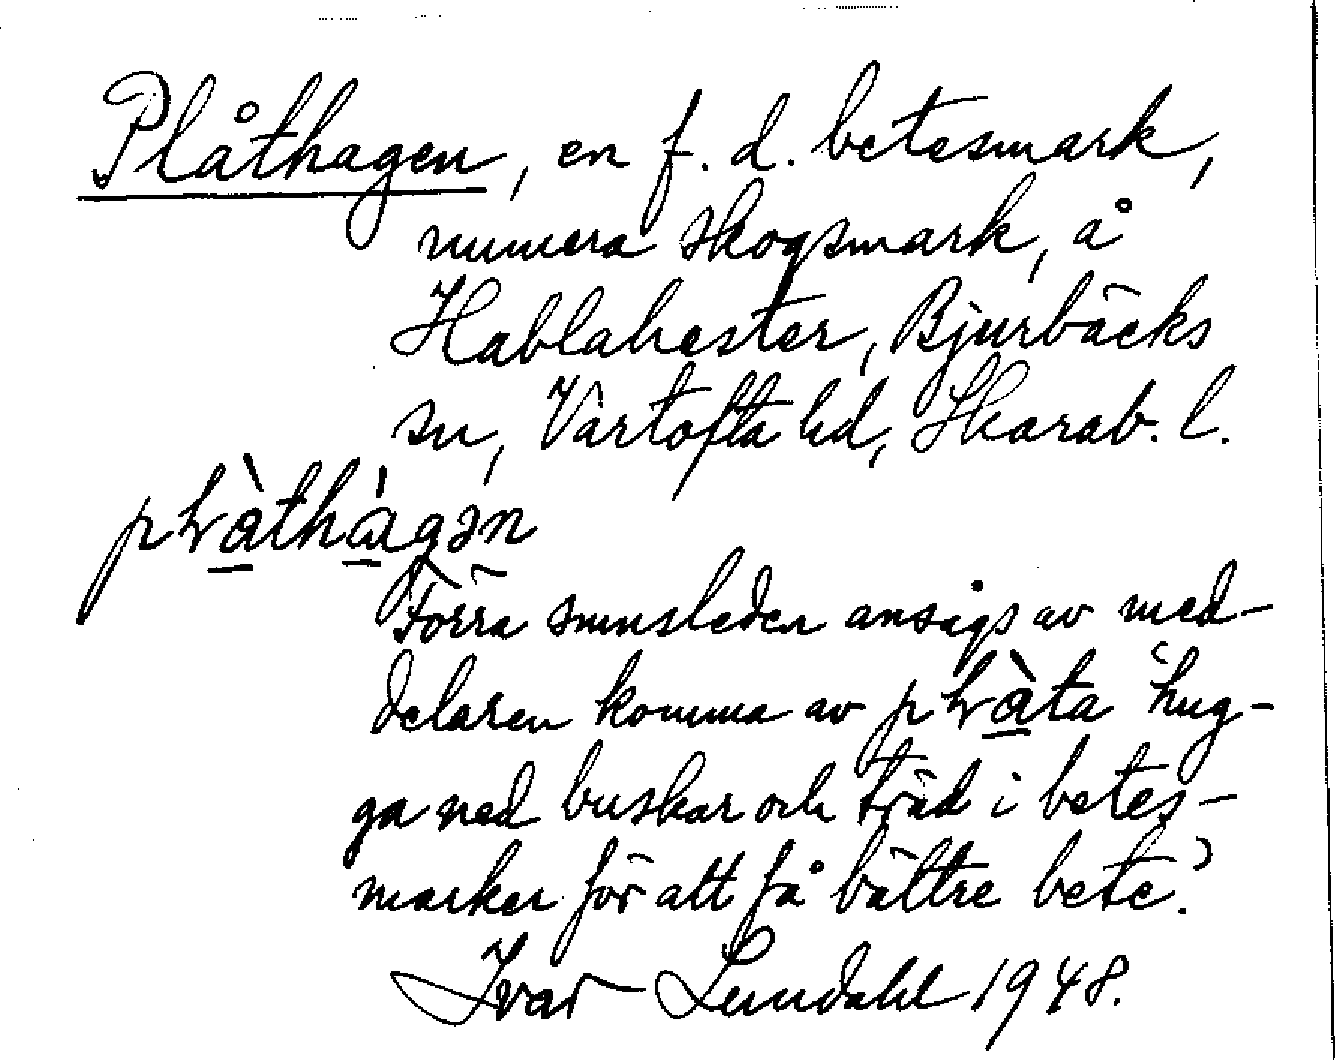 Plåthagen, en f. d. betesmark,
numera skogsmark, å
Hablahester, Bjurbäcks
sn, Vartofta hd, Skarab. l.
Förra smnsleden ansågs av med-
delaren komma av 'hug-
ga ned buskar och träd i betes-
marker för att få bättre bete'.
Ivar Lundahl 1948.